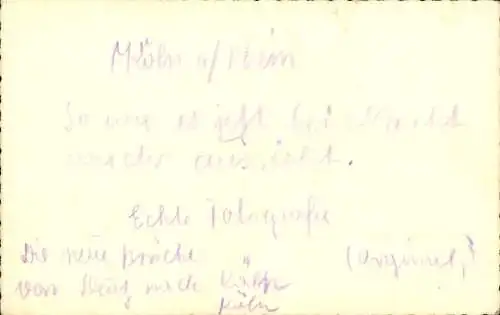 Köln a/Rhein
So wie es jetzt bei Nacht
wieder aussieht.
Echte Fotografie
Die neue Brücke " (Original)
von Deutz nach Köln
Köln